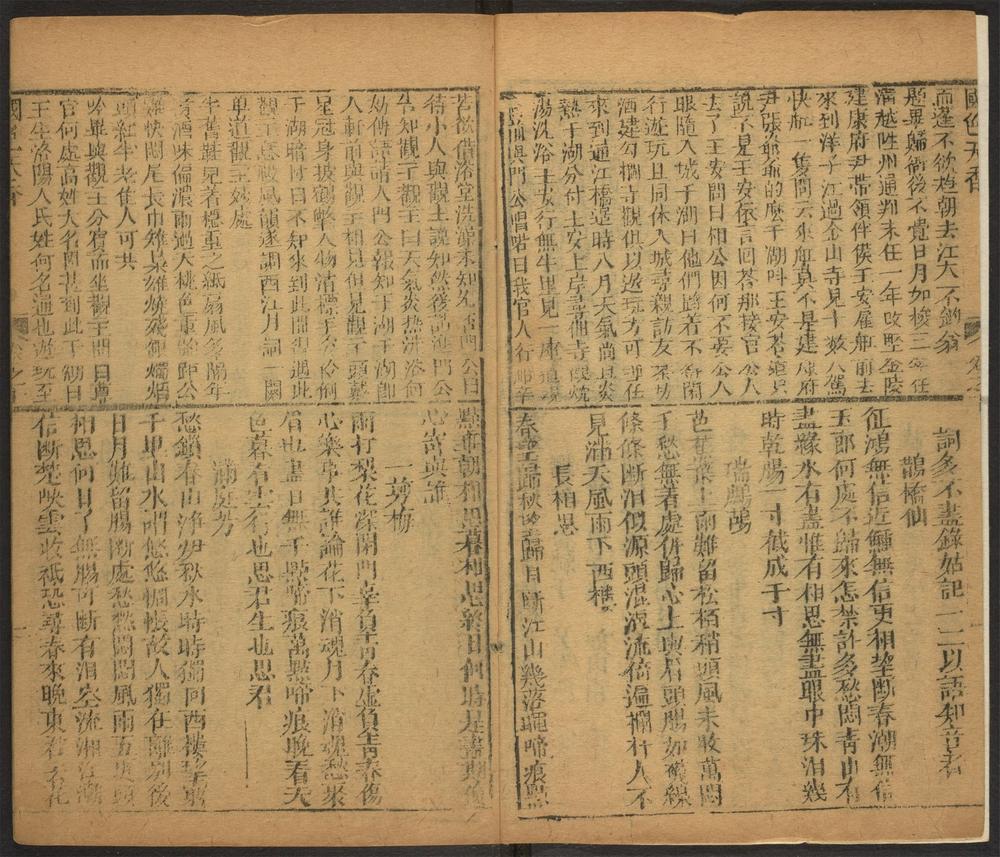 國色天香
而逢不欲趨朝去江大不釣翁
題畢歸衙後不覺日月如梭二年任
滿越州通判未任一年改陞金陵
建康府尹帶領伴僕王安雇船前去
來到洋子江過金山寺見十數人駕
快船一隻問云來船莫不是建康府
尹張爺爺的麼于湖叫王安答道只
說不是王安依言回答那接官公人
去了王安問曰相公因何不要公人
跟隨入城于湖曰他們跟着不好閑
行遊玩且同休入城尋親訪友茶坊
酒肆勾欄寺觀俱以遊玩方可理任
來到通江橋這時八月天氣尚且炎
熱于湖分付王安上岸尋個寺院燒
湯洗浴王安行無半里見一座道觀
前與門公唱喏曰我官人行路辛
詞多不盡錄姑記一二以語知音者
鵲橋仙
征鴻無信近鱗無信更相望斷春潮無信
玉郎何處不歸來怎禁許多愁悶青山有
盡綠水有盡惟有相思無盡眼中珠淚幾
時乾腸一寸截成千寸
瑞鷓鴣
芭蕉葉上雨難留松栢稍頭風未收萬悶
千愁無着處併歸心上與眉頭腸如線
條條斷淚似源頭混混流倚遍欄杆人不
見滿天風雨下西樓
長相思
春望歸秋望歸目斷江山幾落暉啼痕點
苦欲借浴堂洗澡未知允否門公曰
待小人與觀主說知然後請進門公
告知觀主觀主曰天氣炎熱洗浴何
妨傳語請入門公報知于湖于湖即
入軒前與觀主相見但見觀主頭戴
星冠身披鶴氅人物清標伶俐
于湖暗忖曰不知來到此間得遇此
觀主被風韻遂調西江月詞一闋
單道觀主妙處
半舊鞋兒着穩重重紙扇風多隔年
煮酒味偏濃雨過夭桃色重距公
雄快悶尾長巾雉梟雄燒殘銀燭焰
頭紅半老佳人可共
吟畢與觀主分賓而坐觀主問曰尊
官何處高姓大名因甚到此于湖曰
王生洛陽人氏姓何名通也遊玩至
點垂朝相思暮相思終日何時是盡期
心訴與誰
一剪梅
雨打梨花深閉門辜負青春虛負青春傷
心樂事共誰論花下消魂月下消魂愁聚
眉也盡日無千點啼痕萬點啼痕曉看天
色暮看雲行也思君坐也思君
滿庭芳
愁鎖春山淚盈秋水時時獨向西樓望東
千里山水悠悠惆悵故人獨在離別後
日月難留腸斷處愁愁悶悶風雨五更頭
相思何日了無腸可斷有淚空流湘江潮
信斷楚峽雲收祗恐尋春來晚東君老花